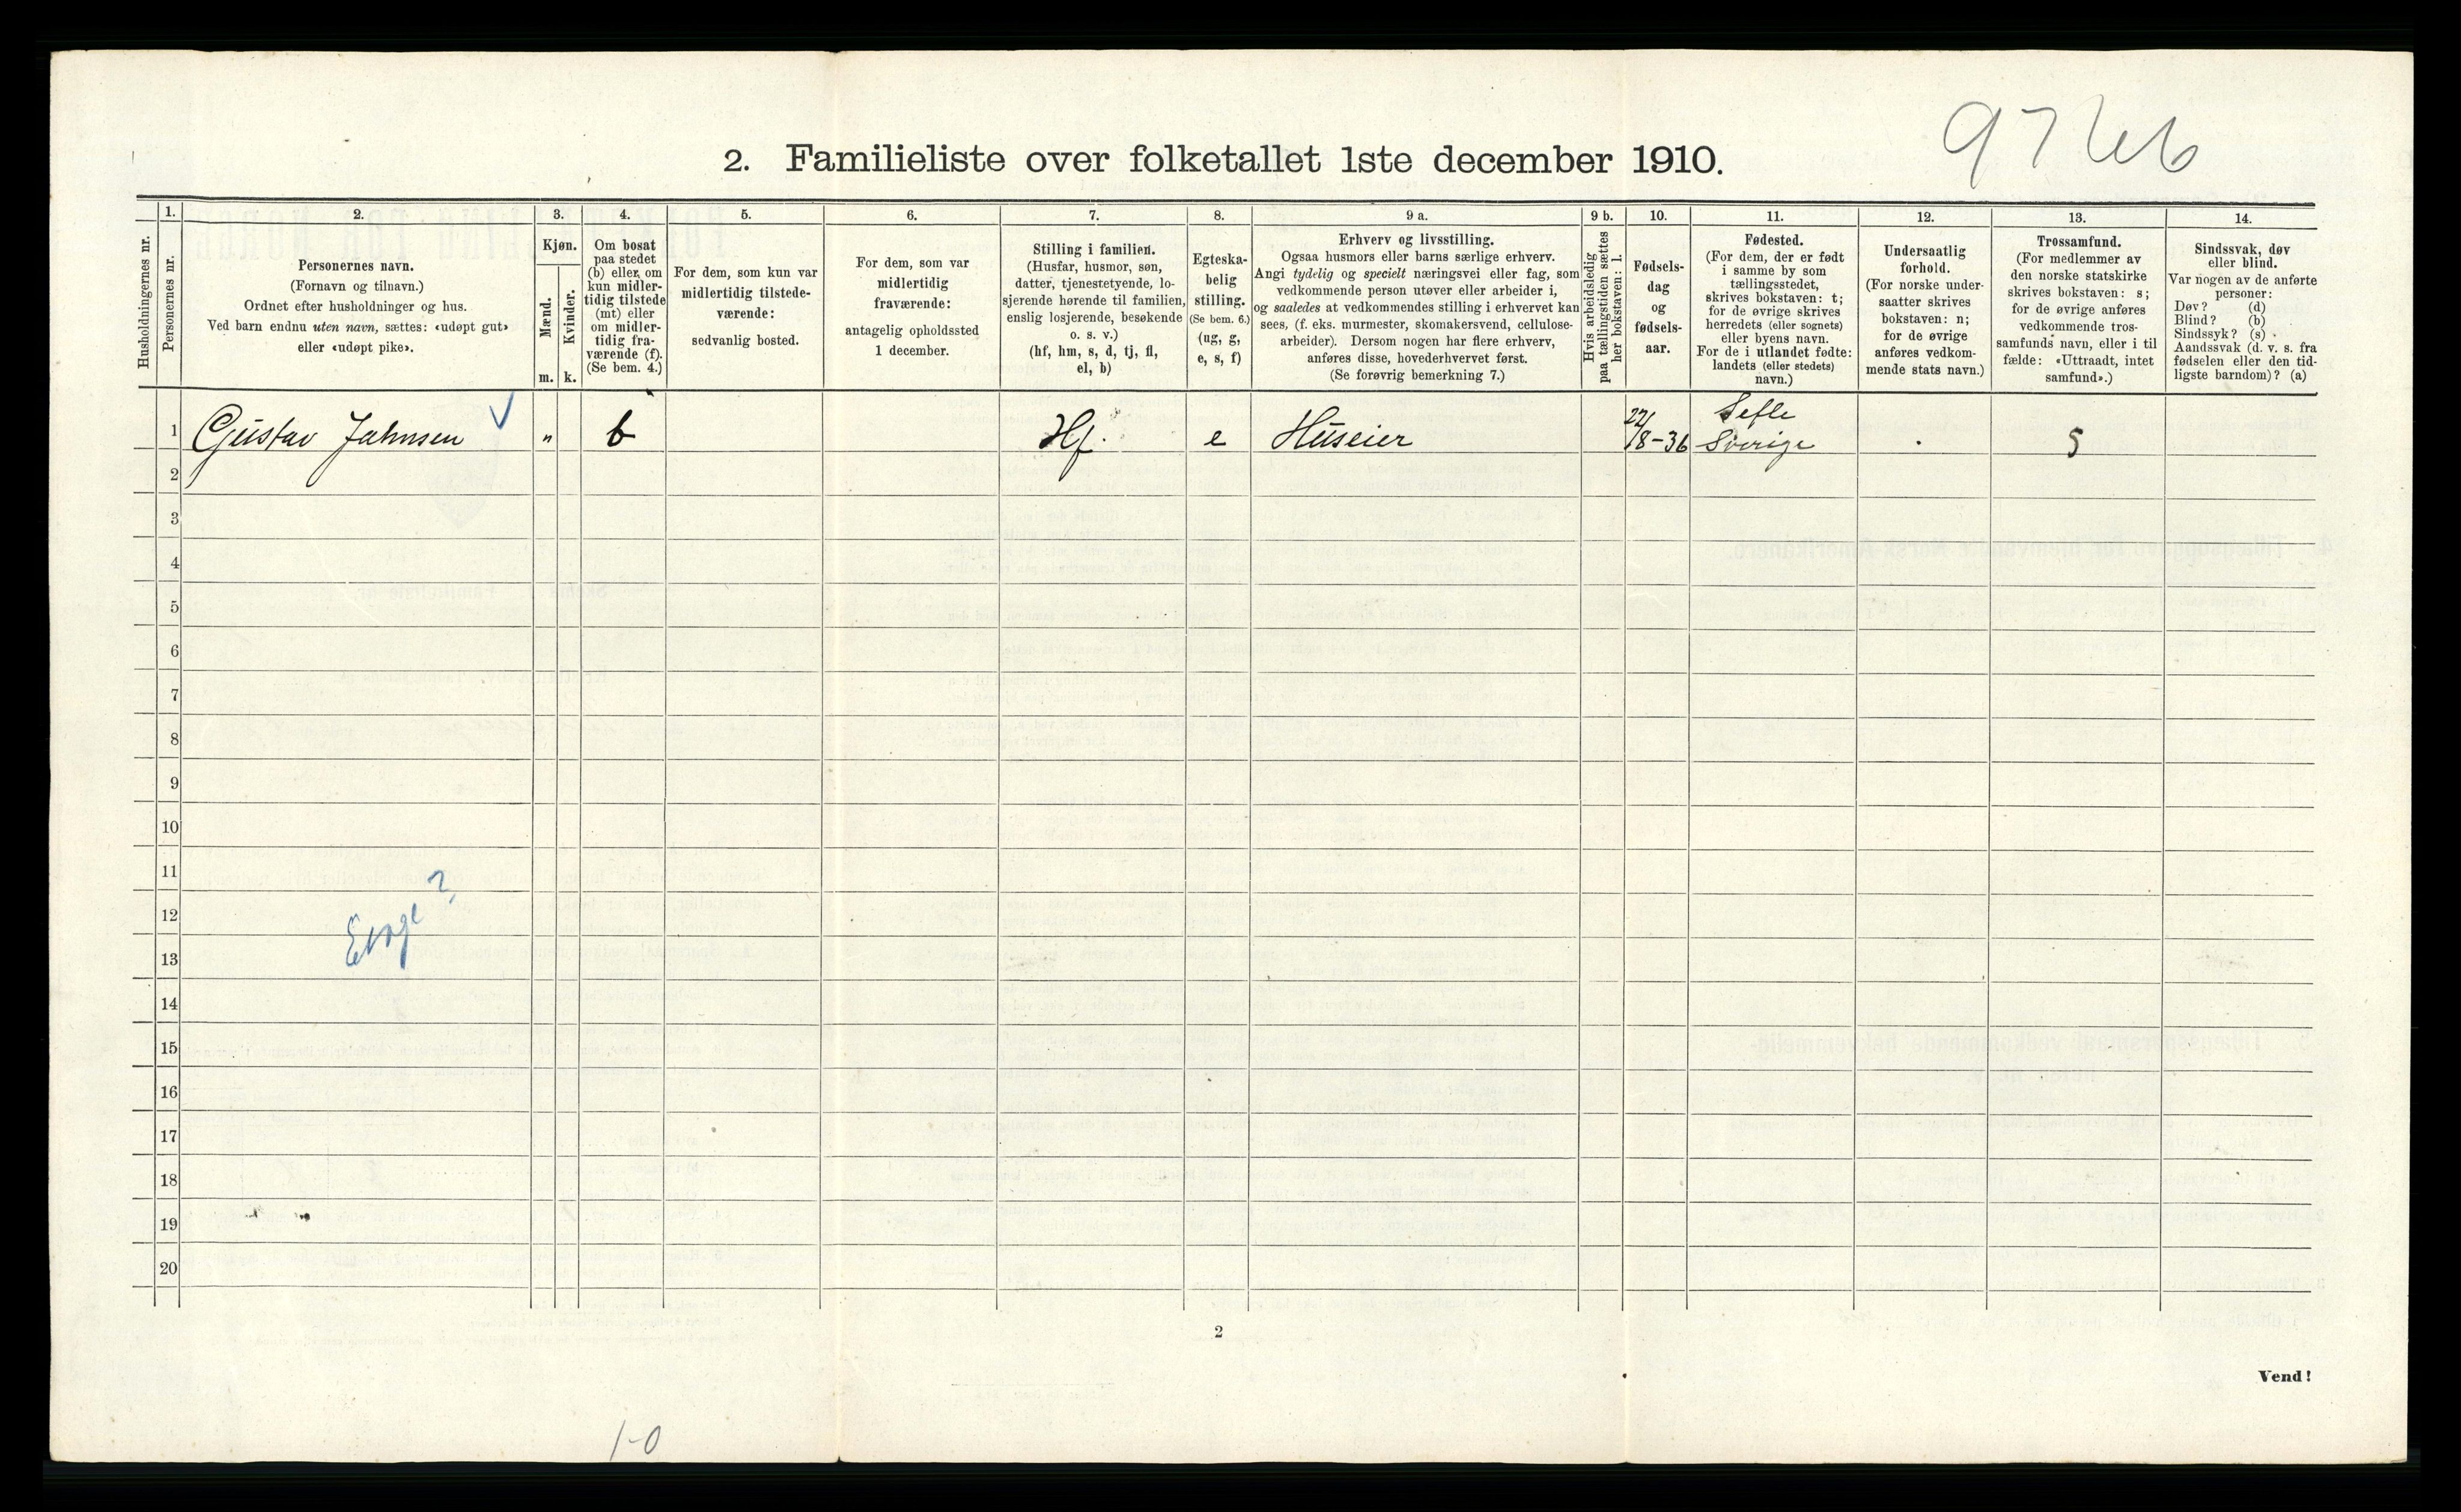 9766
2. Familieliste over folketallet 1ste december 1910.
Husholdningernes nr.
1.
Personernes nr.
2.
Personernes navn.
(Fornavn og tilnavn.)
Ordnet efter husholdninger og hus.
Ved barn endnu uten navn, sættes: «udøpt gut»
eller «udøpt pike».
3.
Kjøn.
Mænd.
Kvinder.
m. k.
4.
Om bosat
paa stedet
(b) eller om
kun midler-
tidig tilstede
(mt) eller
om midler-
tidig fra-
værende (f).
(Se bem. 4.)
5.
For dem, som kun var
midlertidig tilstede-
værende:
sedvanlig bosted.
6.
For dem, som var
midlertidig
fraværende:
antagelig opholdssted
1 december.
7.
Stilling i familien.
(Husfar, husmor, søn,
datter, tjenestetyende, lo-
sjerende hørende til familien,
enslig losjerende, besøkende
o. s. v.)
(hf, hm, s, d, tj, fl,
el, b)
8.
Egteska-
belig
stilling.
(Se bem. 6.)
(ug, g,
e, s, f)
9 a.
Erhverv og livsstilling.
Ogsaa husmors eller barns særlige erhverv.
Angi tydelig og specielt næringsvei eller fag, som
vedkommende person utøver eller arbeider i,
og saaledes at vedkommendes stilling i erhvervet kan
sees, (f. eks. murmester, skomakersvend, cellulose-
arbeider). Dersom nogen har flere erhverv,
anføres disse, hovederhvervet først.
(Se forøvrig bemerkning 7.)
9 b.
Hvis arbeidsledig
paa tællingstiden sættes
her bokstaven: l.
10.
Fødsels-
dag
og
fødsels-
aar.
11.
Fødested.
(For dem, der er født
i samme by som
tællingsstedet,
skrives bokstaven: t;
for de øvrige skrives
herredets (eller sognets)
eller byens navn.
For de i utlandet fødte:
landets (eller stedets)
navn.)
12.
Undersaatlig
forhold.
(For norske under-
saatter skrives
bokstaven: n;
for de øvrige
anføres vedkom-
mende stats navn.)
13.
Trossamfund.
(For medlemmer av
den norske statskirke
skrives bokstaven: s;
for de øvrige anføres
vedkommende tros-
samfunds navn, eller i til
fælde: «Uttraadt, intet
samfund».)
14.
Sindssvak, døv
eller blind.
Var nogen av de anførte
personer:
Døv? (d)
Blind? (b)
Sindssyk? (s)
Aandssvak (d. v. s. fra
fødselen eller den tid-
ligste barndom)? (a)
1 Gustav Jahnsen " b Hf. e Huseier 22/8-36 Sefle Sverige S
2
3
4
5
6
7
8
9
10
11
12
13
14
15
16
17
18
19
20
2
Vend!
1-0